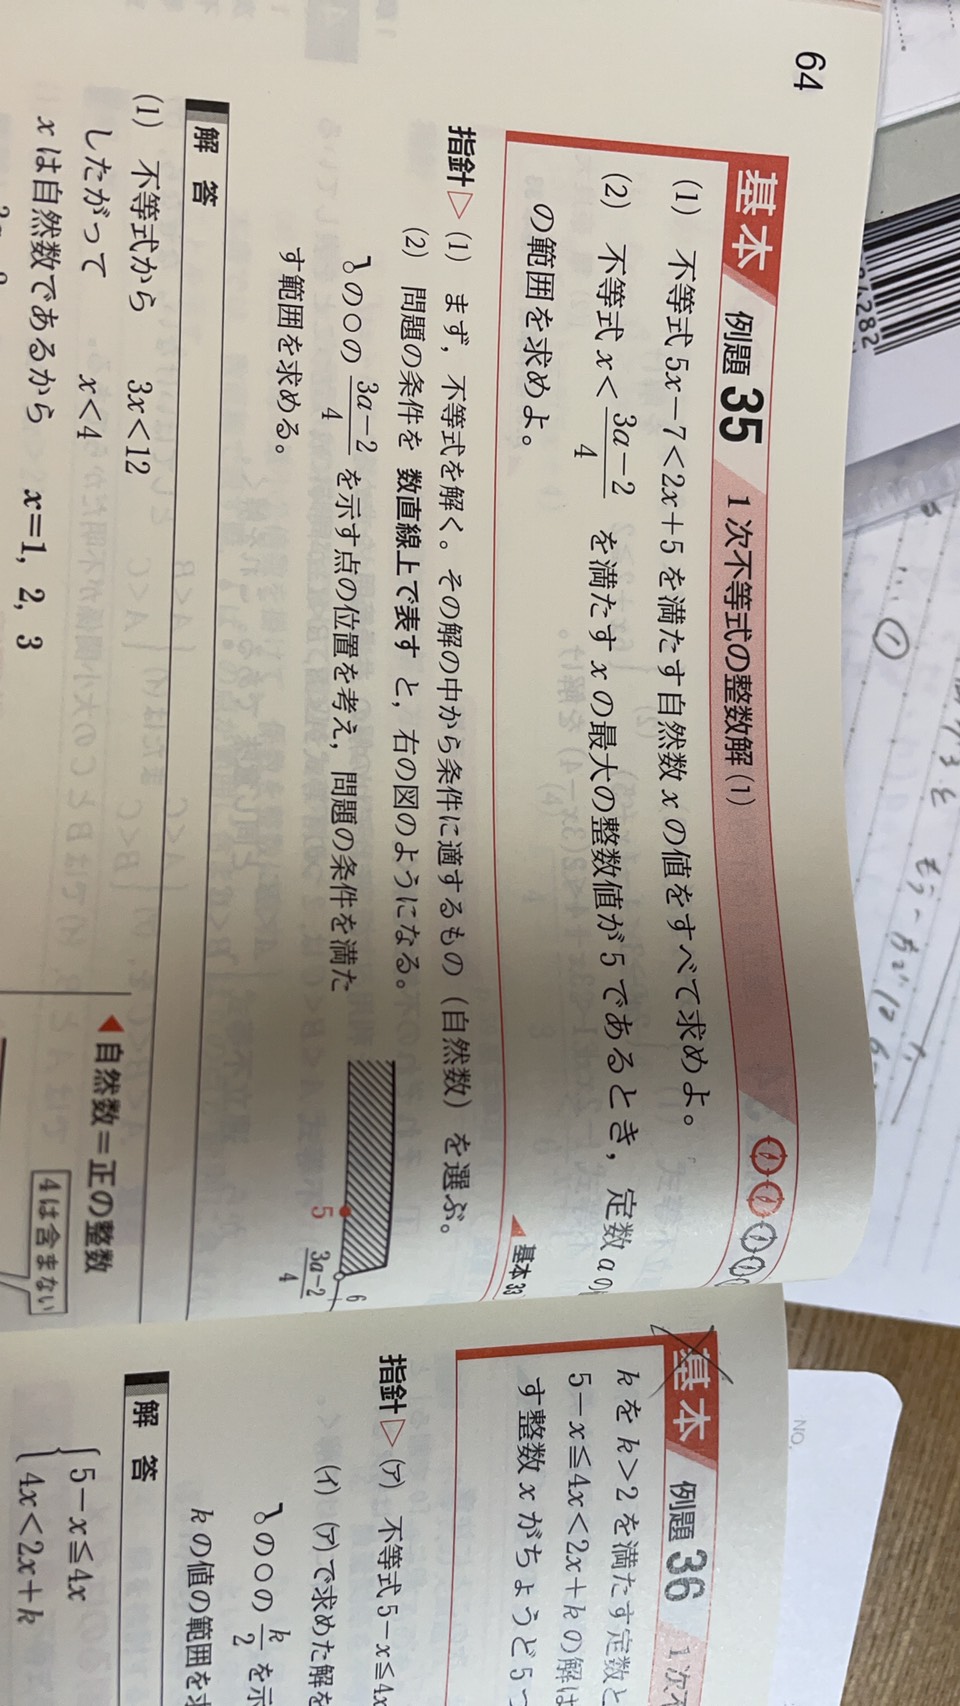 64
基本 例題 35 1次不等式の整数解(1)
(1) 不等式 5x−7<2x+5 を満たす自然数 x の値をすべて求めよ。
(2) 不等式 x<(3a−2)/4 を満たす x の最大の整数値が 5 であるとき，定数 a の
の範囲を求めよ。
基本 33
指針▷ (1) まず，不等式を解く。その解の中から条件に適するもの（自然数）を選ぶ。
(2) 問題の条件を 数直線上で表す と，右の図のようになる。
の○の (3a−2)/4 を示す点の位置を考え，問題の条件を満た
す範囲を求める。
5 (3a−2)/4 6
解 答
(1) 不等式から 3x<12
したがって x<4
x は自然数であるから x=1, 2, 3
◀自然数＝正の整数
4は含まない
基本 例題 36 1次不
k を k>2 を満たす定数と
5−x≦4x<2x+k の解は
す整数 x がちょうど 5つ
指針▷ (ア) 不等式 5−x≦4x
(イ) (ア)で求めた解を
の○の k/2 を示
k の値の範囲を求
解 答
5−x≦4x
4x<2x+k
NO.
①